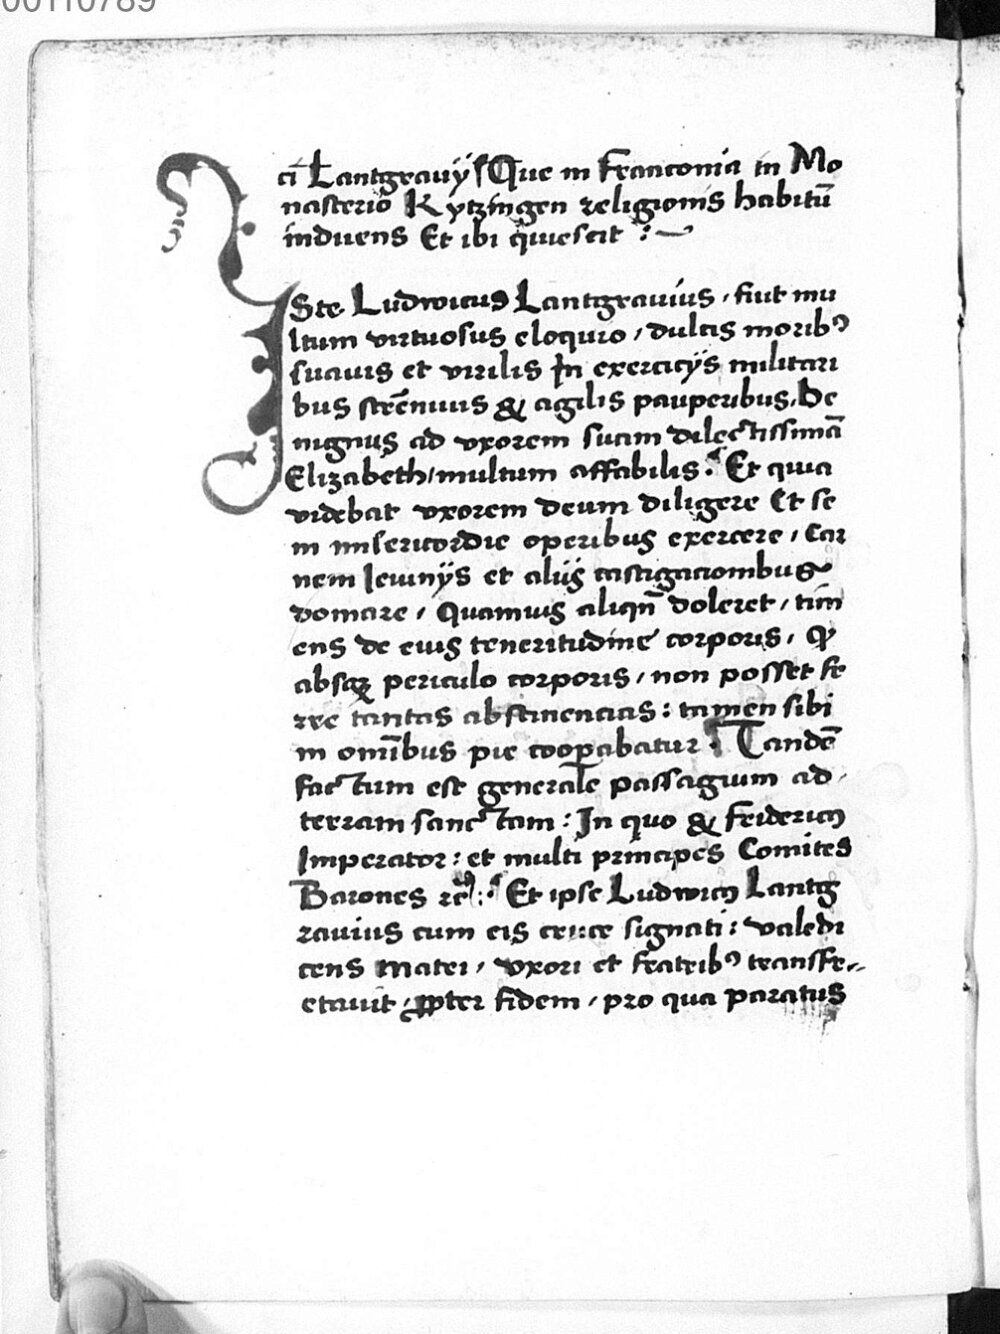 00110789
cī Lantgrauÿ Que in Franconia in Mo
nasterio Kytzingen religionis habitū
induens Et ibi quiescit :~
ISte Ludwicus Lantgrauius / fiut mu
ltum virtuosus eloquio / dulcis moribꝰ
suauis et virilis In exercicÿs militari
bus strēnuus & agilis pauperibus. Be
nignus ad vxorem suam dilectissimā
Elizabeth / multum affabilis : Et quia
videbat vxorem deum diligere Et se
in misericordie operibus exercere / Car
nem Ieiunÿs et alÿs castigacionibus
domare / Quamuis aliqn̄ doleret / tim
ens de eius teneritudine corporis / ꝙ
absqꝫ periculo corporis / non posset fe
rre tantas abstinencias : tamen sibi
in omībus pie coopabatur : Tandē
factum est generale passagium ad
terram sanctam : In quo & Fridericꝰ
Imperator : et multi principes Comites
Barones rc̄ : Et ipse Ludwicꝰ Lantg
rauius cum eis cruce signati : valedi
cens matri / vxori et fratribꝰ transfr-
etauit / ꝓpter fidem / pro qua paratus